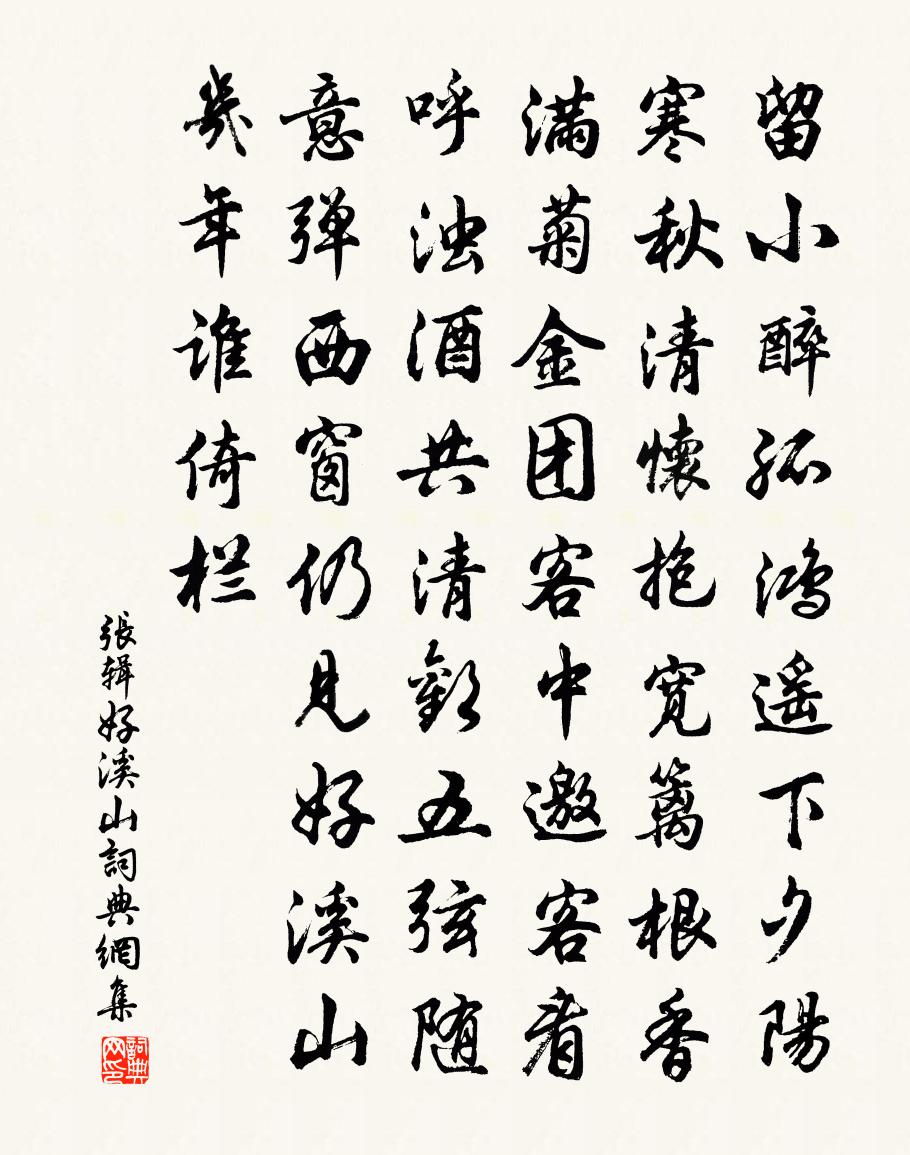 留小醉孤鸿遥下夕陽
寒秋清懷抱寬籬根香
满菊金团客中邀客看
呼浊酒共清歡五弦随
意弹西窗仍見好溪山
幾年谁倚栏
張辑好溪山詞典網集
詞典网印